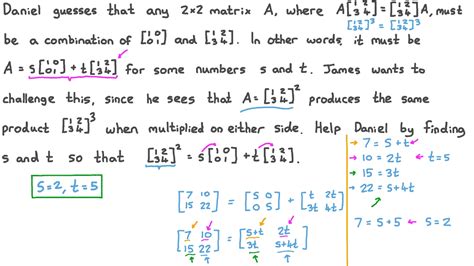 Daniel guesses that any 2×2 matrix A, where A[1 2 3 4] = [1 2 3 4]A, must
[1 2 3 4]³ = [1 2 3 4]³
be a combination of [1 0 0 1] and [1 2 3 4]. In other words, it must be
A = s[1 0 0 1] + t[1 2 3 4] for some numbers s and t. James wants to
challenge this, since he sees that A = [1 2 3 4]² produces the same
product [1 2 3 4]³ when multiplied on either side. Help Daniel by finding
s and t so that [1 2 3 4]² = s[1 0 0 1] + t[1 2 3 4].
S=2, t=5
[7 10 15 22] = [S 0 0 S] + [t 2t 3t 4t]
[7 10 15 22] = [S+t 2t 3t S+4t]
→ 7 = S+t ←
→ 10 = 2t ← t=5
→ 15 = 3t
→ 22 = S+4t
7 = S+5 S=2